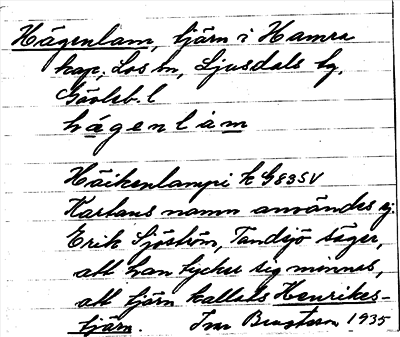 Hägenlam, tjärn i Hamra
kap. Los sn, Ljusdals tg,
Gävleb. l
hägenlàm
Häikenlampi k G83SV
Kartans namn användes ej.
Erik Sjöström, Tandsjö säger,
att han tycker sig minnas,
att tjärn kallats Henrikes-
tjärn. 1935